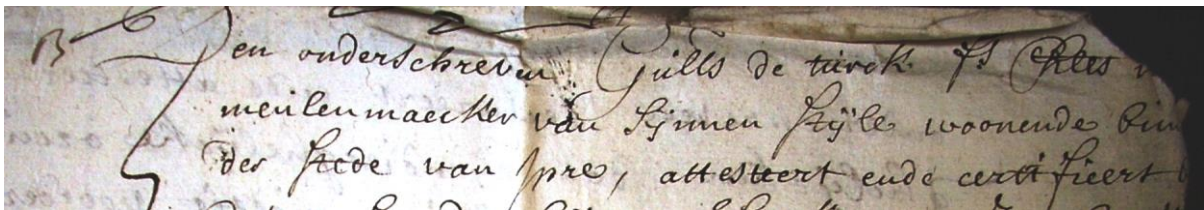 B Den onderschreven Gills de turck fs Chles
meulenmaecker van sijnen stijle woonende bin
der stede van Ipre, attesteert ende certifieert